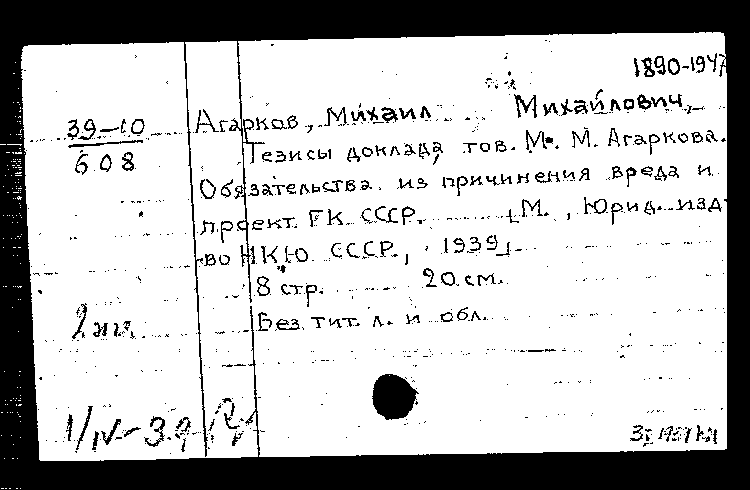 1890-1947
39-10
608
Агарков, Михаил Михайлович,
Тезисы доклада, тов. М. М. Агаркова.
Обязательства из причинения вреда и
проект ГК СССР. М., Юрид. изд-
во НКЮ СССР, 1939,
8 стр. 20 см.
Без тит. л. и обл.
1/IV-39